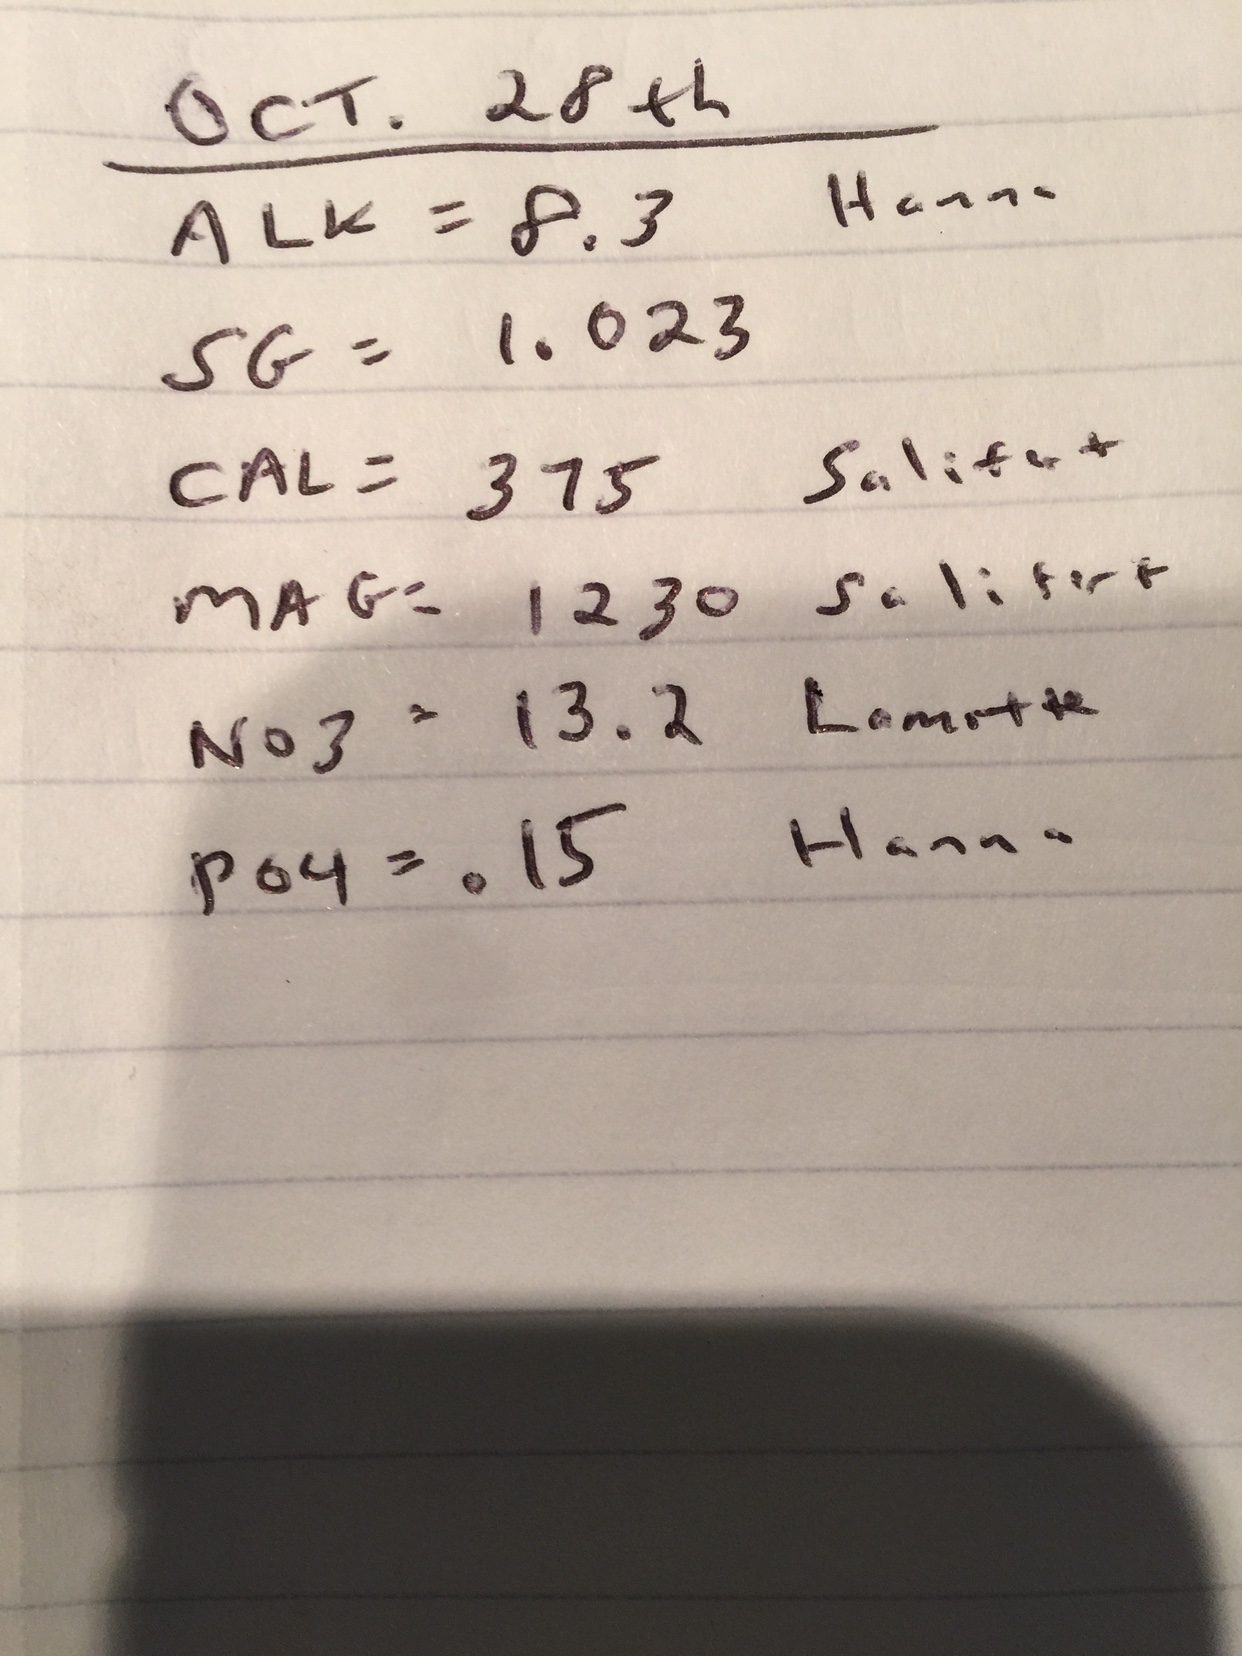 OCT. 28th
ALK = 8.3 Hanna
SG = 1.023
CAL = 375 Salifert
MAG= 1230 Salifert
NO3 = 13.2 Lamotte
PO4 = .15 Hanna